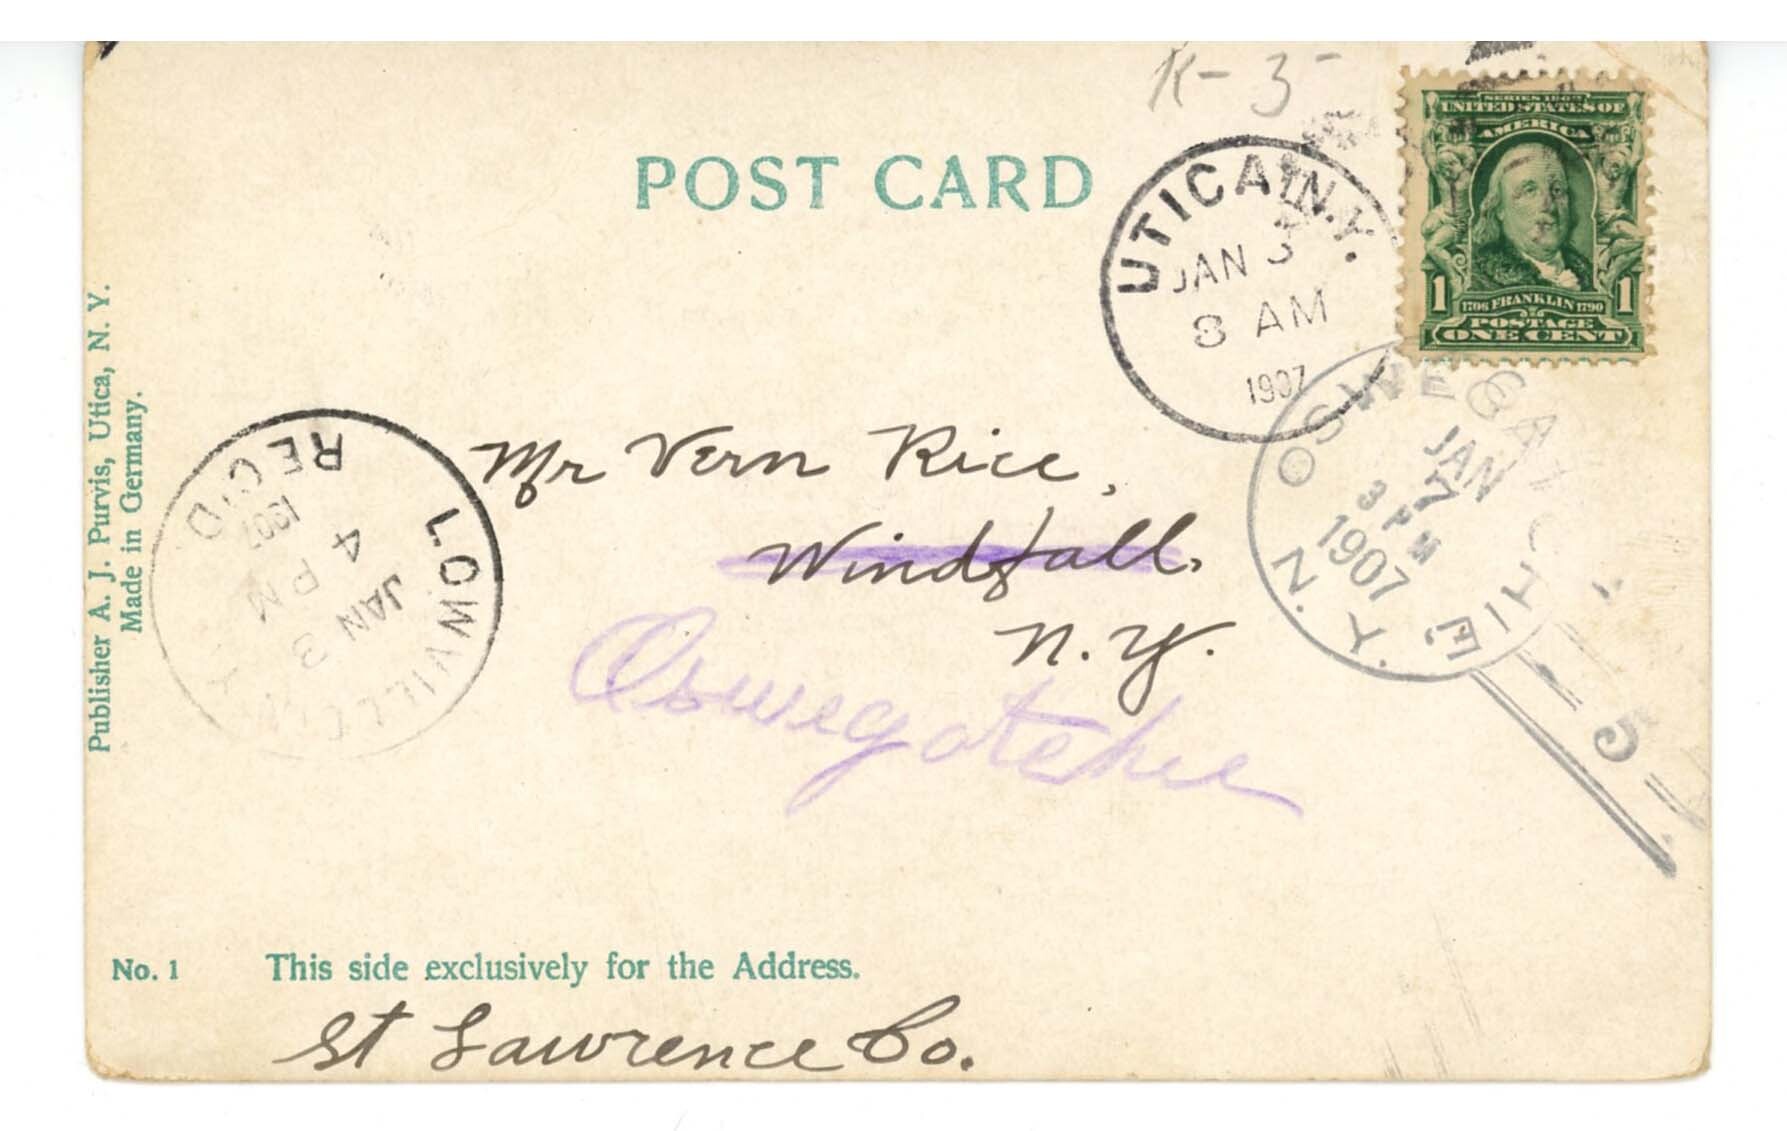 R-3-
POST CARD
SERIES 1902
UNITED STATES OF
AMERICA
1 1706 FRANKLIN 1790 1
POSTAGE
ONE CENT
UTICA, N.Y.
JAN 3
8 AM
1907
OSWEGATCHIE, N.Y.
JAN
7
3 PM
1907
5
LOWVILLE, N.Y.
JAN 3
4 PM
1907
REC'D
Mr Vern Rice,
Windfall,
N.Y.
Oswegatchie
Publisher A. J. Purvis, Utica, N. Y.
Made in Germany.
No. 1 This side exclusively for the Address.
St Lawrence Co.